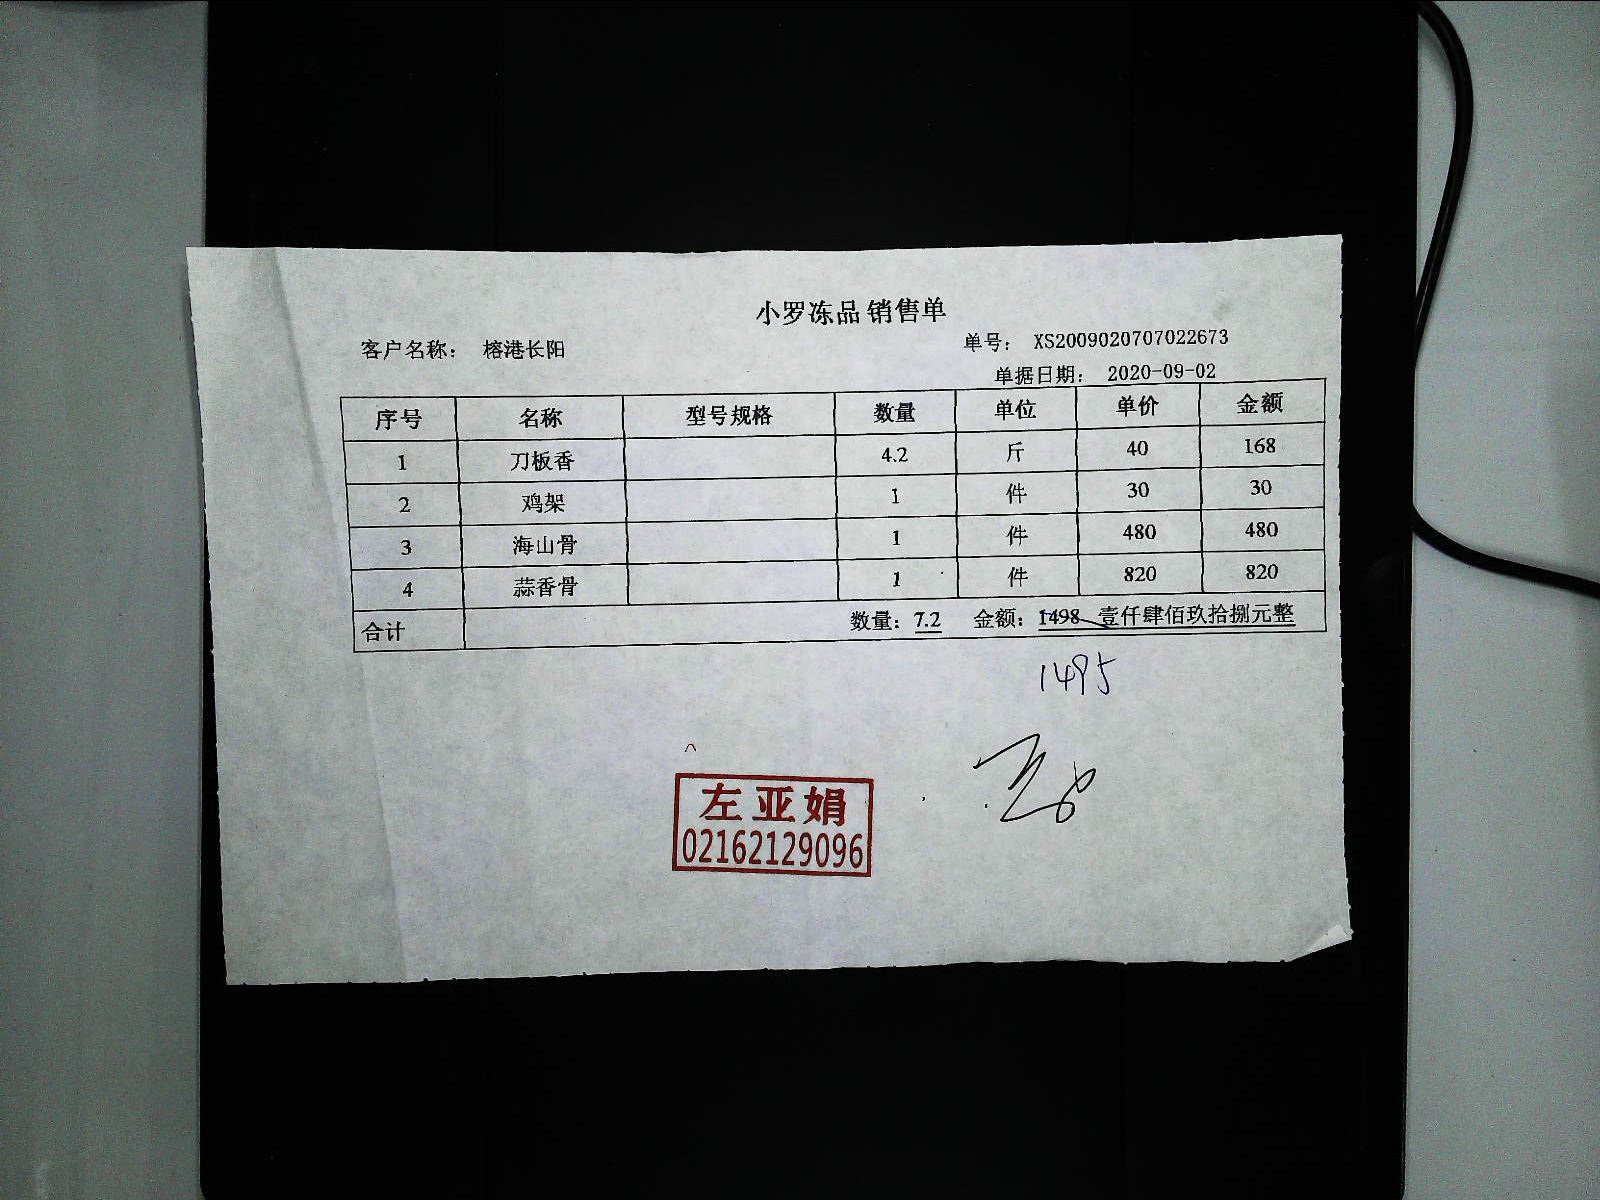 小罗冻品 销售单
客户名称： 榕港长阳 单号： XS2009020707022673
单据日期： 2020-09-02
序号 名称 型号规格 数量 单位 单价 金额
1 刀板香 4.2 斤 40 168
2 鸡架 1 件 30 30
3 海山骨 1 件 480 480
4 蒜香骨 1 件 820 820
合计 数量：7.2 金额：1498 壹仟肆佰玖拾捌元整
1495
左亚娟
02162129096